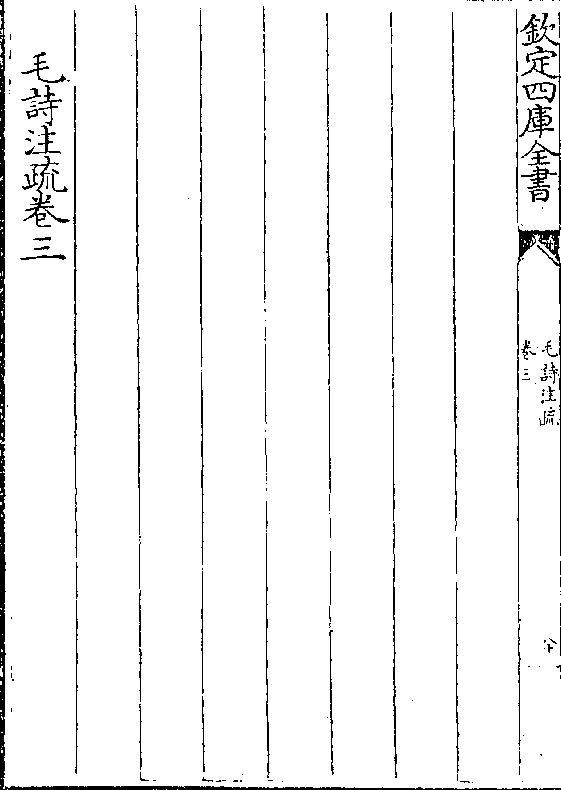 欽定四庫全書
毛詩注疏
卷三
毛詩注疏卷三